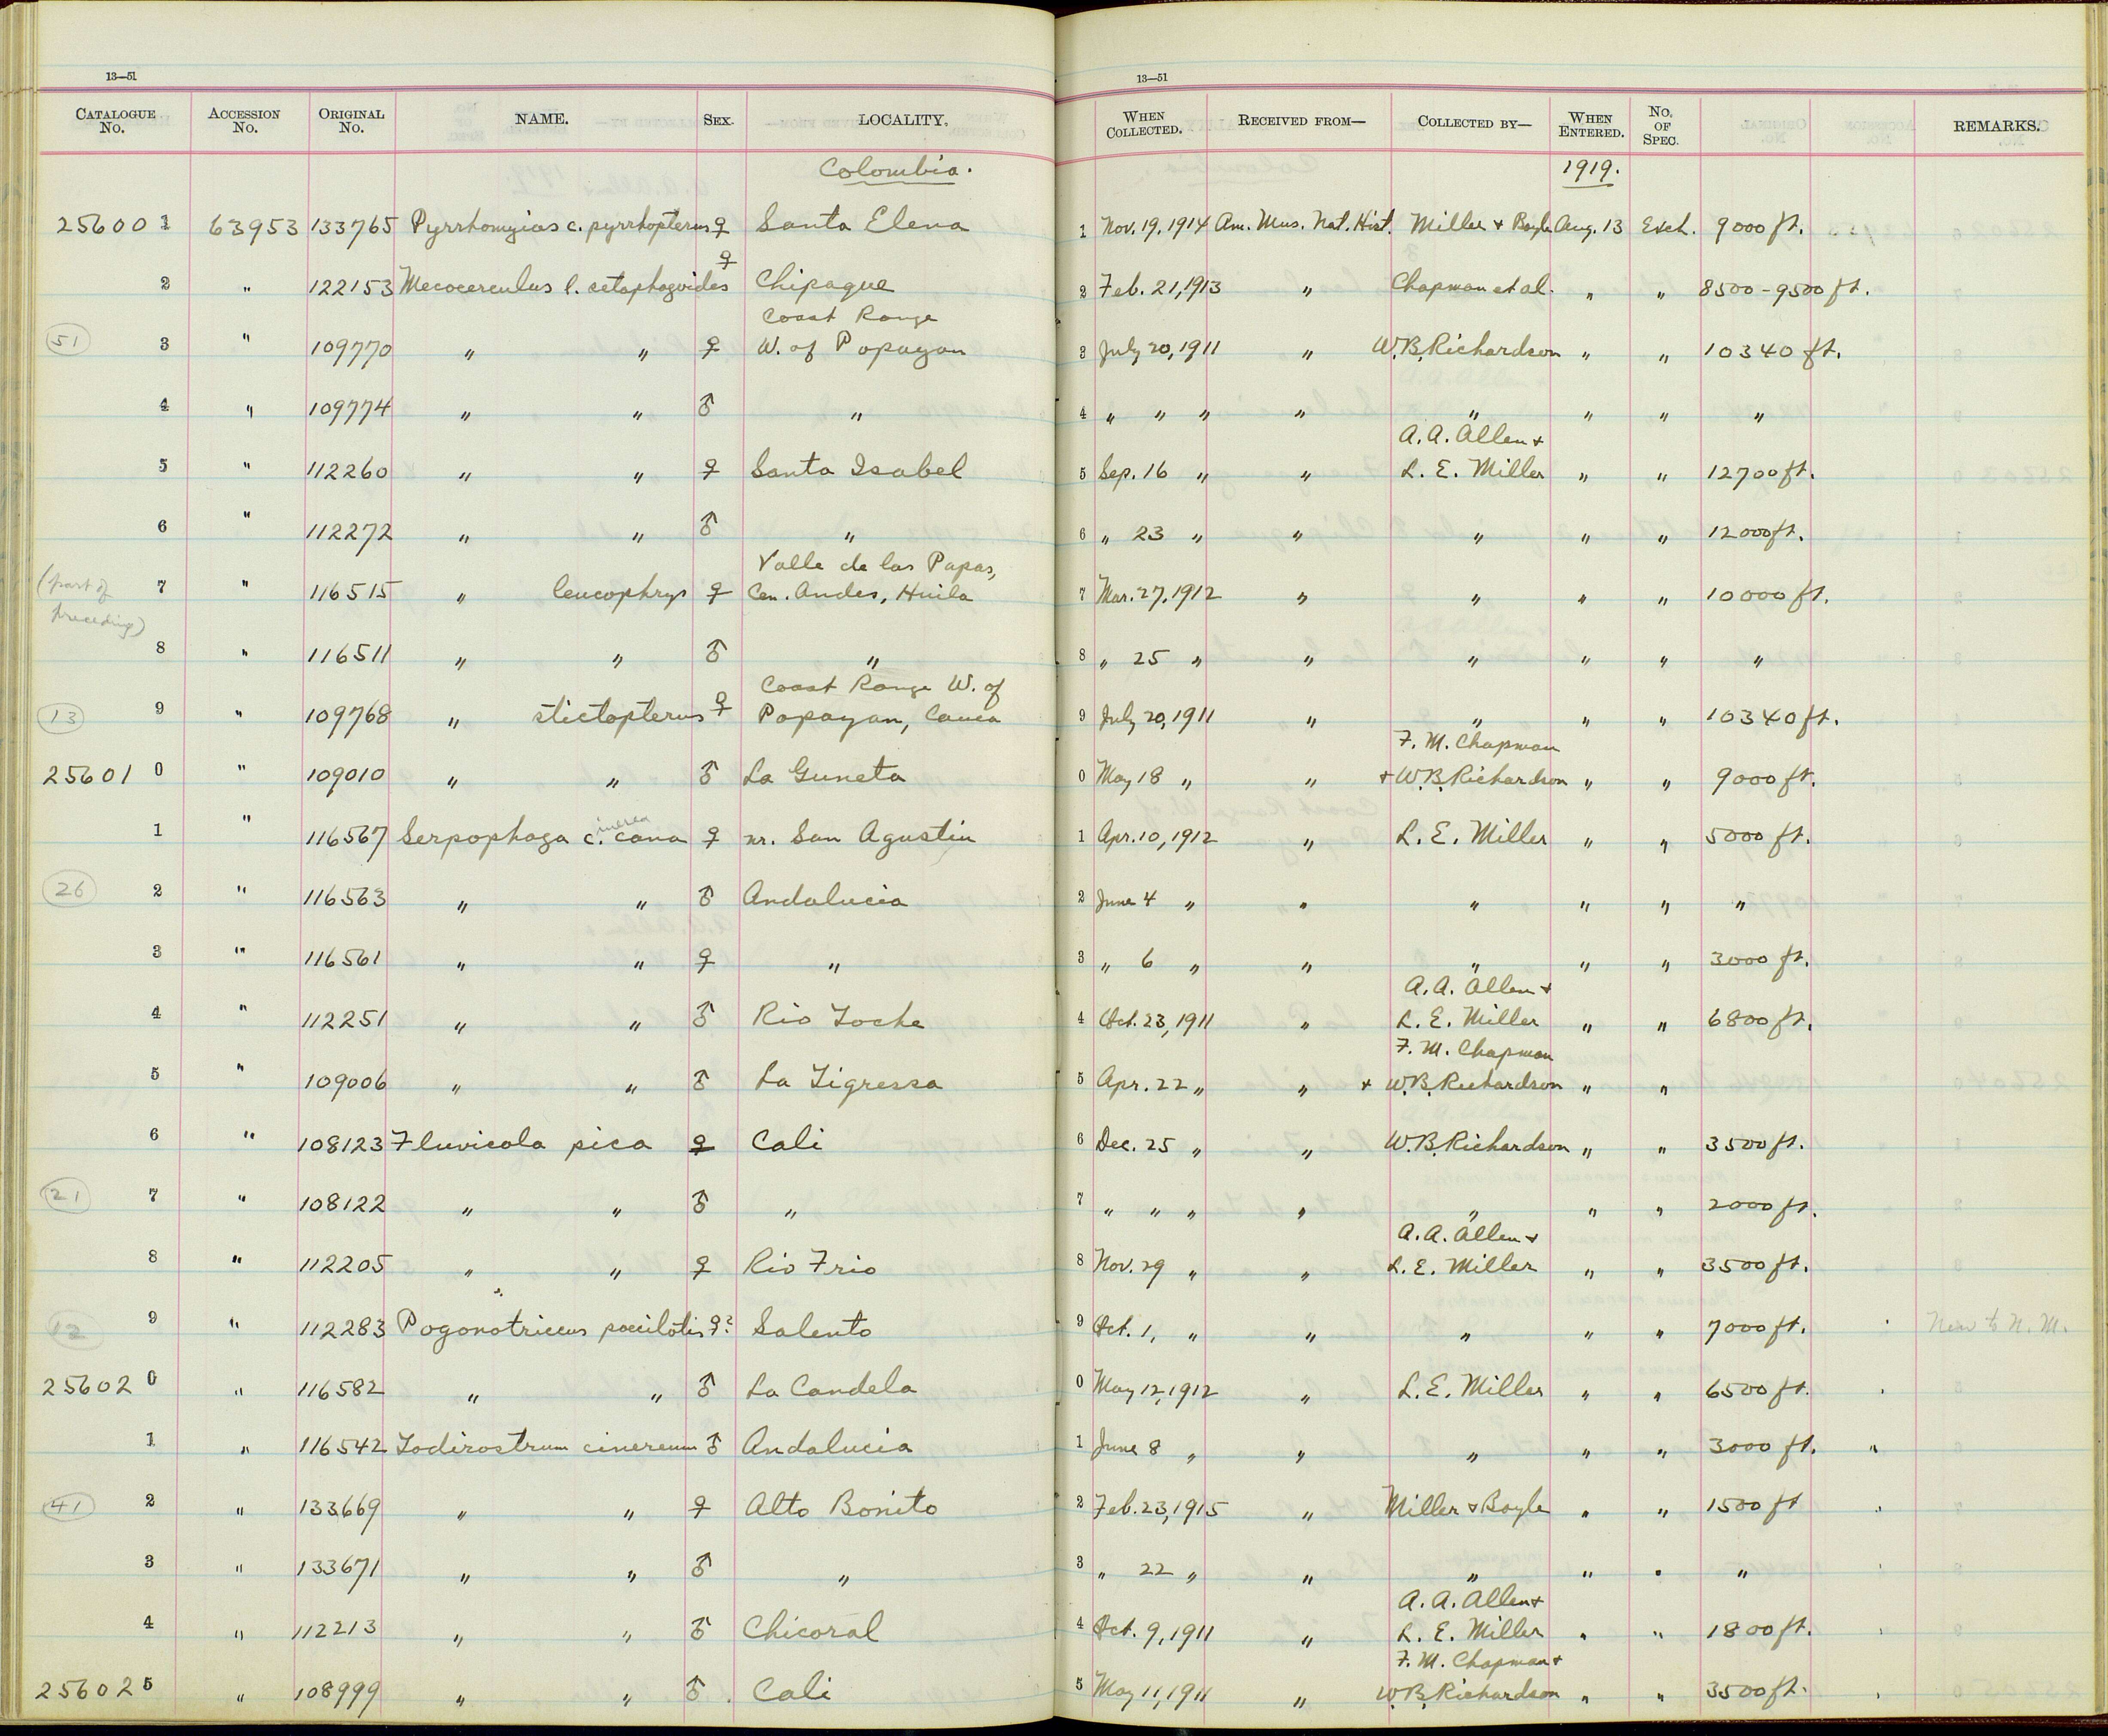 13—51
CATALOGUE No. ACCESSION No. ORIGINAL No. NAME. SEX. LOCALITY.
Colombia.
256001 63953 133765 Pyrrhomyias c. pyrrhopterus ♀ Santa Elena
2 " 122153 Mecocerculus l. setophagoides ♀ Chipaque
Coast Range
(51) 3 " 109770 " " ♀ W. of Popayan
4 " 109774 " " ♂ "
5 " 112260 " " ♀ Santa Isabel
6 " 112272 " " ♂ "
Valle de las Papas,
(part of preceding) 7 " 116515 " leucophrys ♀ Cen. Andes, Huila
8 " 116511 " " ♂ "
Coast Range W. of
(13) 9 " 109768 " stictopterus ♀ Popayan, Cauca
256010 " 109010 " " ♂ La Guneta
1 " 116567 Serpophaga c. inerea cana ♀ nr. San Agustin
(26) 2 " 116563 " " ♂ Andalucia
3 " 116561 " " ♀ "
4 " 112251 " " ♂ Rio Toche
5 " 109006 " " ♂ La Tigressa
6 " 108123 Fluvicola pica ♀ Cali
(21) 7 " 108122 " " ♂ "
8 " 112205 " " ♀ Rio Frio
(12) 9 " 112283 Pogonotriccus poecilotis ♀? Salento
256020 " 116582 " " ♂ La Candela
1 " 116542 Todirostrum cinereum ♂ Andalucia
(41) 2 " 133669 " " ♀ Alto Bonito
3 " 133671 " " ♂ "
4 " 112213 " " ♂ Chicoral
256025 " 108999 " " ♂ Cali
13—51
WHEN COLLECTED. RECEIVED FROM— COLLECTED BY— WHEN ENTERED. No. OF SPEC. REMARKS.
1919.
1 Nov. 19, 1914 Am. Mus. Nat. Hist. Miller & Boyle Aug. 13 Exch. 9000 ft.
2 Feb. 21, 1913 " Chapman et al. " " 8500-9500 ft.
3 July 20, 1911 " W.B. Richardson " " 10340 ft.
4 " " " " " " " "
A. A. Allen &
5 Sep. 16 " " L. E. Miller " " 12700 ft.
6 " 23 " " " " " 12000 ft.
7 Mar. 27, 1912 " " " " 10000 ft.
8 " 25 " " " " " "
9 July 20, 1911 " " " " 10340 ft.
F. M. Chapman
0 May 18 " " & W.B. Richardson " " 9000 ft.
1 Apr. 10, 1912 " L. E. Miller " " 5000 ft.
2 June 4 " " " " " "
3 " 6 " " " " " 3000 ft.
A. A. Allen &
4 Oct. 23, 1911 " L. E. Miller " " 6800 ft.
F. M. Chapman
5 Apr. 22 " " & W.B. Richardson " "
6 Dec. 25 " " W.B. Richardson " " 3500 ft.
7 " " " " " " " 2000 ft.
A. A. Allen &
8 Nov. 29 " " L. E. Miller " " 3500 ft.
9 Oct. 1, " " " " " 7000 ft. New to N. M.
0 May 12, 1912 " L. E. Miller " " 6500 ft. "
1 June 8 " " " " " 3000 ft. "
2 Feb. 23, 1915 " Miller & Boyle " " 1500 ft "
3 " 22 " " " " " " "
A. A. Allen &
4 Oct. 9, 1911 " L. E. Miller " " 1800 ft. "
F. M. Chapman &
5 May 11, 1911 " W.B. Richardson " " 3500 ft. "